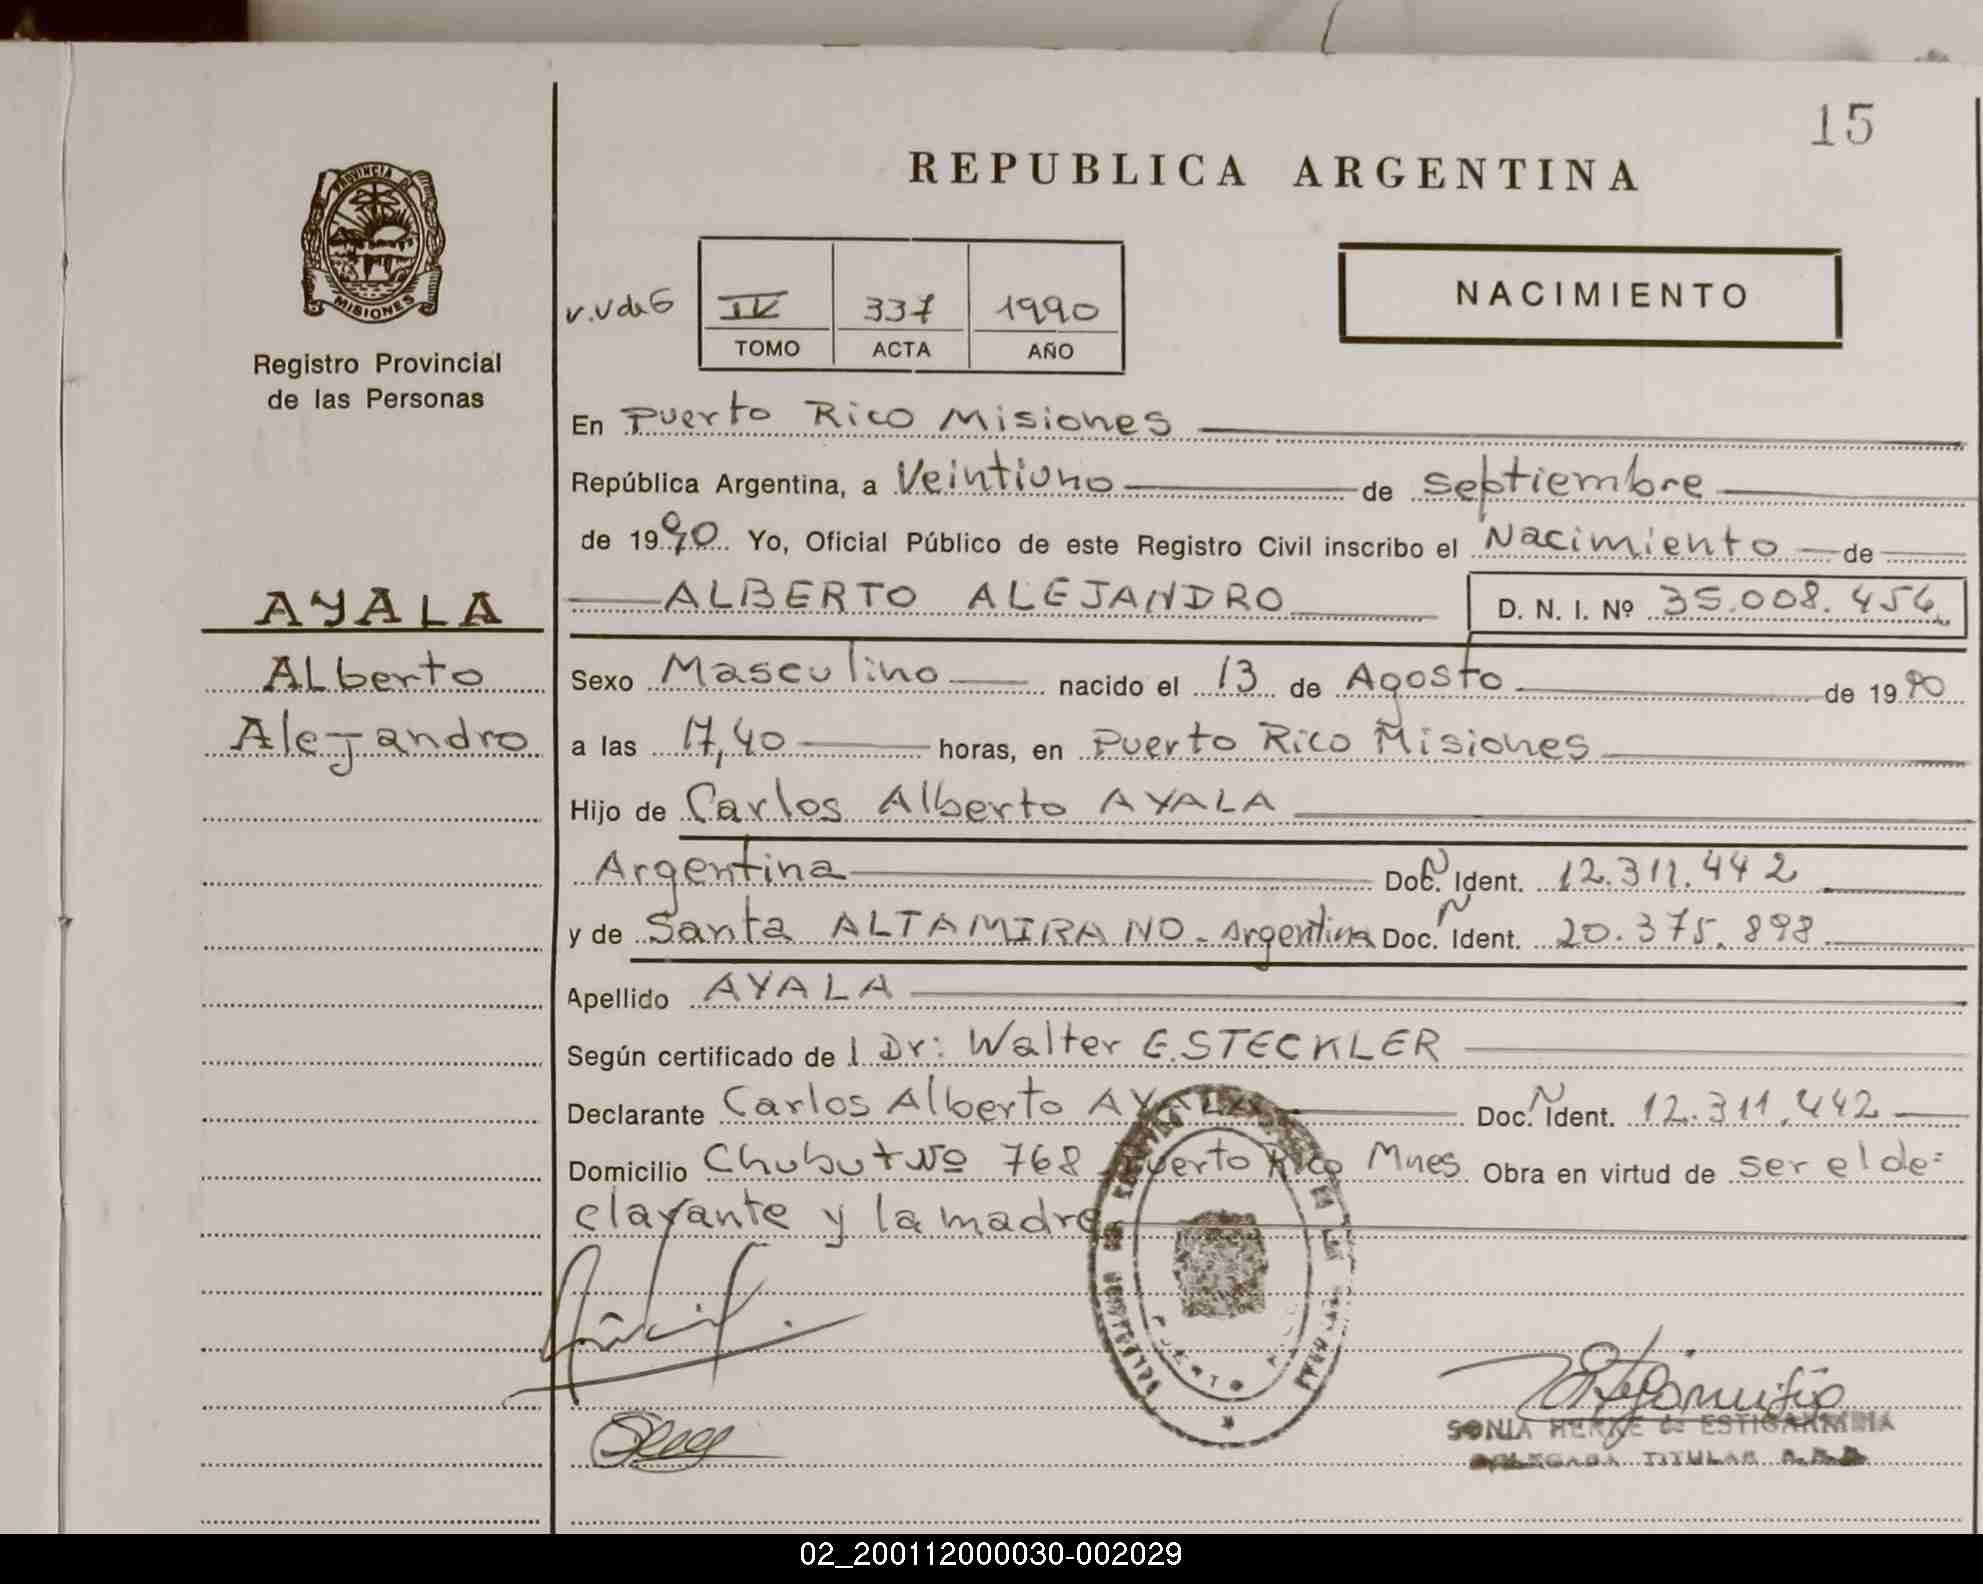 15
REPUBLICA ARGENTINA
PROVINCIA DE
MISIONES
Registro Provincial
de las Personas
v.v de G
IV 337 1990
TOMO ACTA AÑO
NACIMIENTO
En Puerto Rico Misiones
República Argentina, a Veintiuno de septiembre
de 1990 Yo, Oficial Público de este Registro Civil inscribo el Nacimiento de
ALBERTO ALEJANDRO D. N. I. Nº 35.008.454
AYALA
Alberto
Alejandro
Sexo Masculino nacido el 13 de Agosto de 1990
a las 17,40 horas, en Puerto Rico Misiones
Hijo de Carlos Alberto AYALA
Argentina Doc. Ident. 12.311.442
y de Santa ALTAMIRANO - Argentina Doc. Ident. 20.375.898
Apellido AYALA
Según certificado de l Dr: Walter E. STECKLER
Declarante Carlos Alberto AYALA Doc. Ident. 12.311.442
Domicilio Chubut Nº 768 Puerto Rico Mnes Obra en virtud de ser el de=
clarante y la madre
SONIA HENKE de ESTIGARRIBIA
DELEGADA TITULAR
02_200112000030-002029